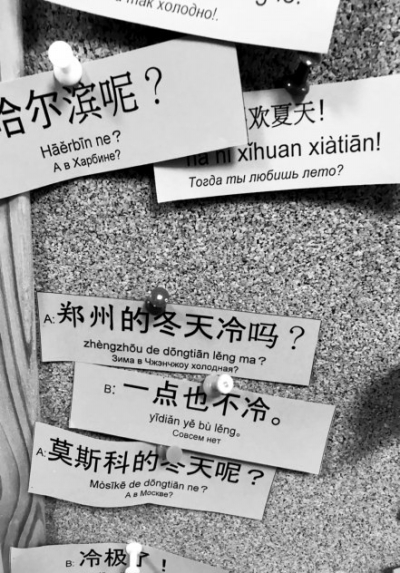 так холодно!.
哈尔滨呢？
Hāěrbīn ne？
А в Харбине?
欢夏天！
nà nǐ xǐhuan xiàtiān!
Тогда ты любишь лето?
A: 郑州的冬天冷吗？
zhèngzhōu de dōngtiān lěng ma？
Зима в Чжэнчжоу холодная?
B: 一点也不冷。
yīdiǎn yě bù lěng。
Совсем нет
A: 莫斯科的冬天呢？
Mòsīkē de dōngtiān ne？
А в Москве?
B: 冷极了！